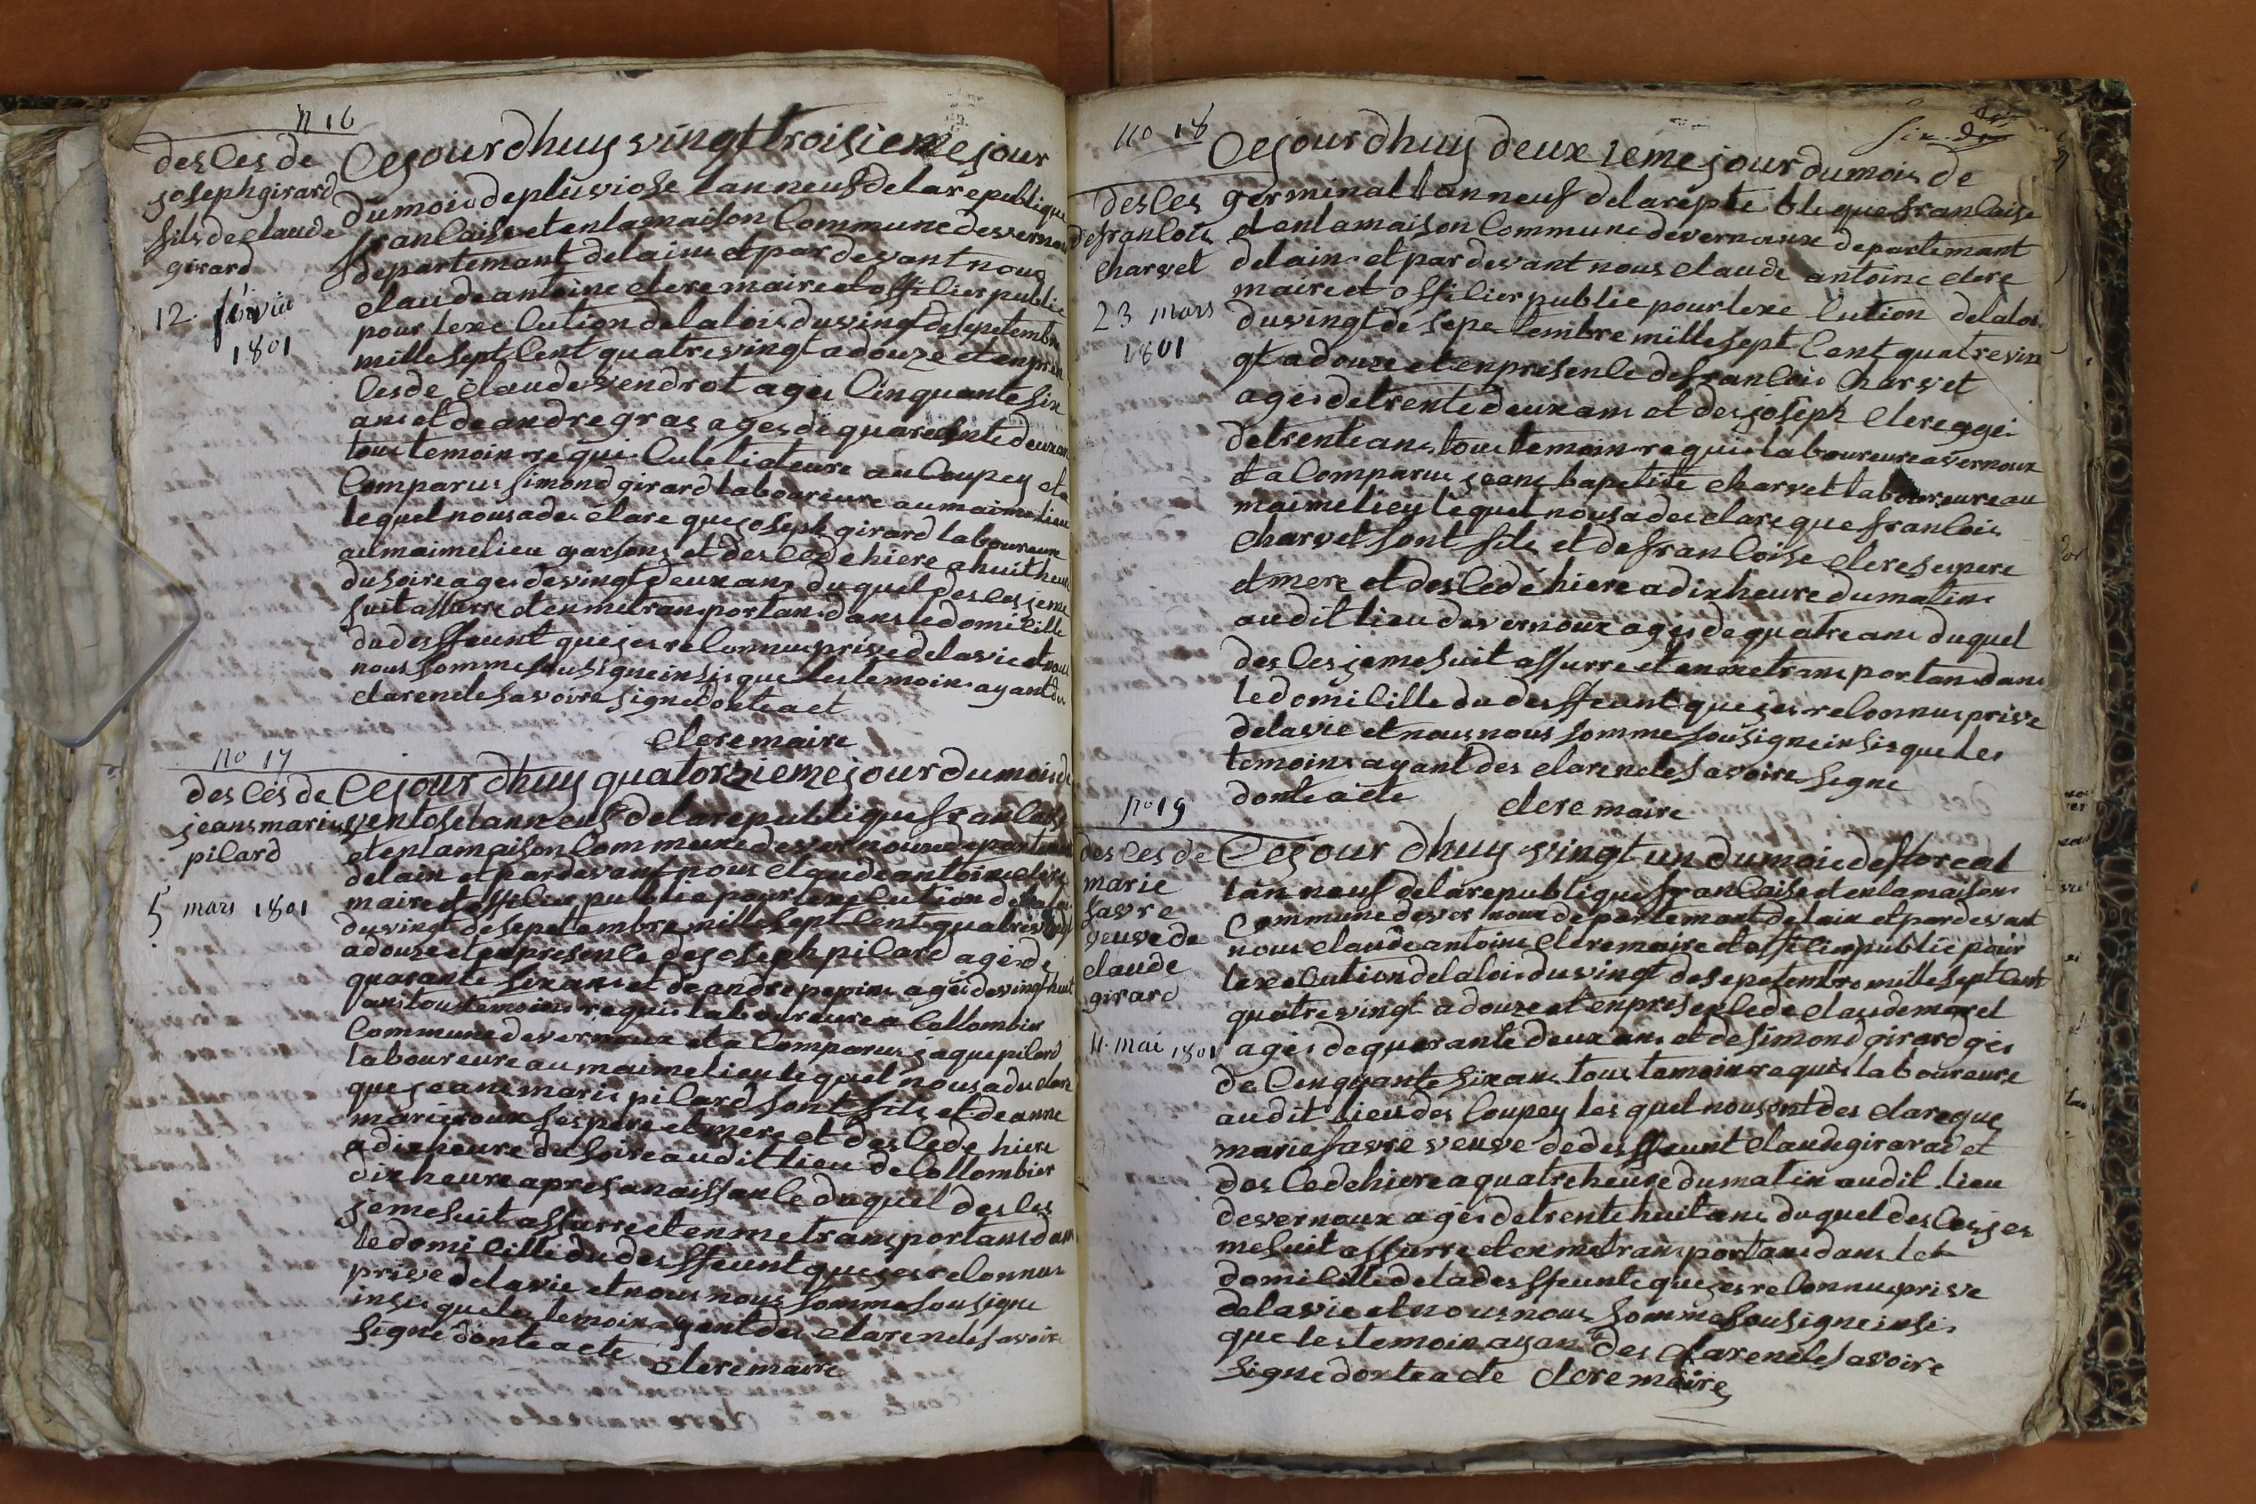 n 16
desCes de
joseph girard
fils de claude
girard
12 février
1801
Cejourdhuy vingt troisieme jour
du mois depluviose lan neuf de la republique
francaise et en la maison Commune de vernoux
departemant delain et par devant nous
claude antoine clere maire et officier public
pour lexecution de la lois du vingt desepetembre
mille sept Cent quatre vingt a douze et en presen
Ces de claude vendrot ages Cinquante six
ans et de andre gras ages de quarente deux ans
tous temoin requis Culetivateure au Coupey et a
Comparus simond girard laboureure au maime lieu
lequel nous a des clare que joseph girard laboureure
au maime lieu garsons et des Cede hiere a huit heure
du soire ages de vingt deux ans du quel des Ces jeme
suit assurre et en me transportans dans le domicille
du desffeunt que jes reConnus prive de la vie et nous
nous somme sousigne insis que les temoins ayant des
clare ne le savoire signe donte act
clere maire
no 17
des Ces de
jeans marie
pilard
5 mars 1801
Cejour dhuy quatorzieme jour du mois de
ventose lan neuf de la republique francaise
et en la maison Commune de vernoux departemant
delain et par devant nous claude antoine clere
maire et officier public pour lexecution de la lois
du vingt de sepetembre mille sept Cent quatre vingt
a douze et en presence de joseph pilard ages de
quarante six ans et de andre pepins ages de vingt huit
ans tous temoins requis laboureure a Collombier
Commune de vernoux et a Comparus jaque pilard
laboureure au maime lieu lequel nous a de clare
que jeans marie pilard sont fils et de anne
marie roux ses pere et mere et des Cede hiere
a dix heure du soire audit lieu de Collombier
dix heure apres sa naissance du quel des Ces
jeme suit assurre et en me transportans dans
le domicille du desffeunt que jes reConnus
prive de la vie et nous nous somme sousigne
insis que les temoin ayant des clare ne le savoire
signe donte acte
clere maire
no 18
desCes
defrancois
Charvet
23 mars
1801
six
Cejourdhuy deux ieme jour du mois de
germinal lan neuf de la repu blique francaise
et en la maison Commune de vernoux departemant
delain et par devant nous claude antoine clere
maire et officier public pour lexe Cution de la lois
du vingt de sepe tembre mille sept Cent quatre vin
gt a douze et en presence de francois Charvet
ages de trente deux ans et de joseph clere ages
de trente ans tous temoin requis laboureure a vernoux
et a Comparus jeans bapetiste Charvet laboureure au
maime lieu lequel nous a des clare que francois
Charvet sont fils et de francoise clere ses pere
et mere et des Cede hiere a dix heure du matin
audit lieu de vernoux ages de quatre ans du quel
des Ces jeme suit assurre et en me transportans dans
le domicille du desffeunt que jes reConnus prive
de la vie et nous nous somme sousigne insis que les
temoins ayant des clare ne le savoire signe
donte acte
clere maire
no 19
des Ces de
marie
favre
veuve de
claude
girard
11 mai 1801
Cejour dhuy vingt un du mois de floreal
lan neuf de la republique francaise et en la maison
Commune de ver noux departemant de lain et par devant
nous claude antoine clere maire et officier public pour
lexecution de la lois du vingt de sepetembre mille sept Cent
quatre vingt a douze et en presence de claude morel
ages de quarante deux ans et de simond girard ges
de Cenquante six ans tous temoin requis laboureure
audit lieu des Coupey les quel nous ont des clare que
marie favre veuve de desffeunt claude girarad et
des Cede hiere a quatre heure du matin audit lieu
de vernoux ages de trente huit ans du quel des Ces jes
me suit assurre et en me transportans dans le
domicille de la desffeunte que jes reConnus prive
de la vie et nous nous somme sousigne insis
que les temoin ayan des clare ne le savoire
signe donte acte clere maire